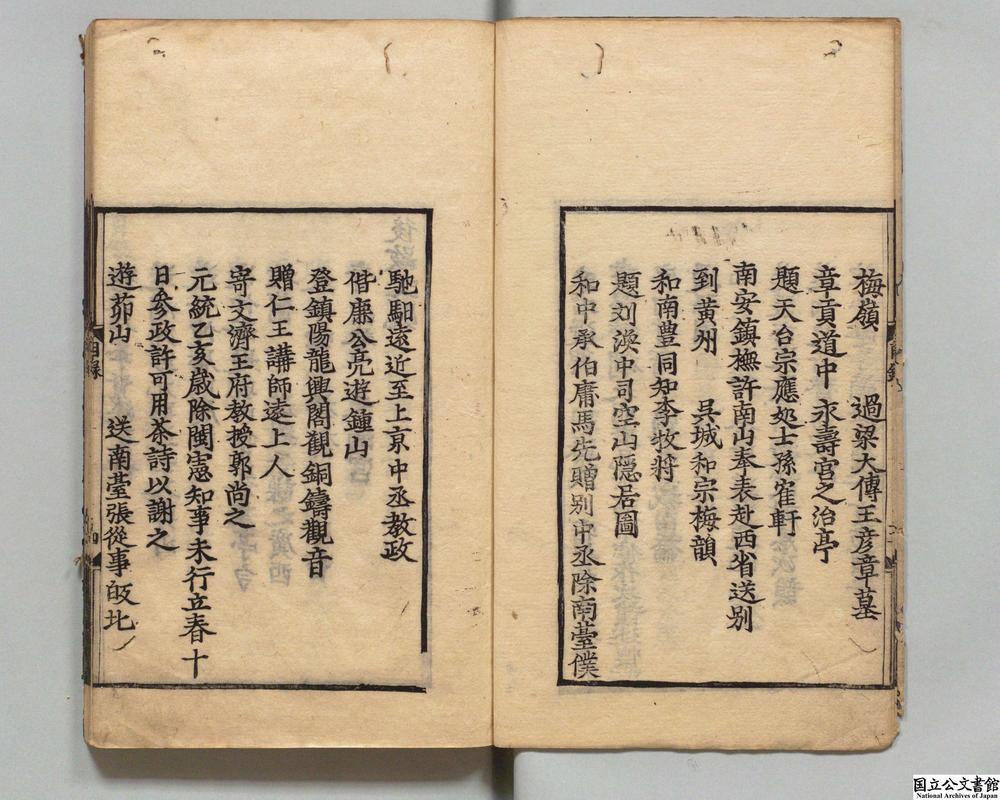 梅嶺　過梁大傅王彦章墓
章貢道中　永壽宮之治亭
題天台宗應処士孫寉軒
南安鎮撫許南山奉表赴西省送别
到黄州　呉城和宗梅韻
和南豊同知李牧将
題刘渙中司空山隠居圖
和中承伯庸馬先贈别中丞除南䑓僕
馳馹遠近至上京中丞教政
偕廉公亮遊鍾山
登鎮陽龍興閣觀銅鑄觀音
贈仁王講師遠上人
寄文濟王府教授郭尚之
元統乙亥歳除閩憲知事未行立春十
日參政許可用茶詩以謝之
遊茆山　送南䑓張從事皈北
目録
国立公文書館
National Archives of Japan